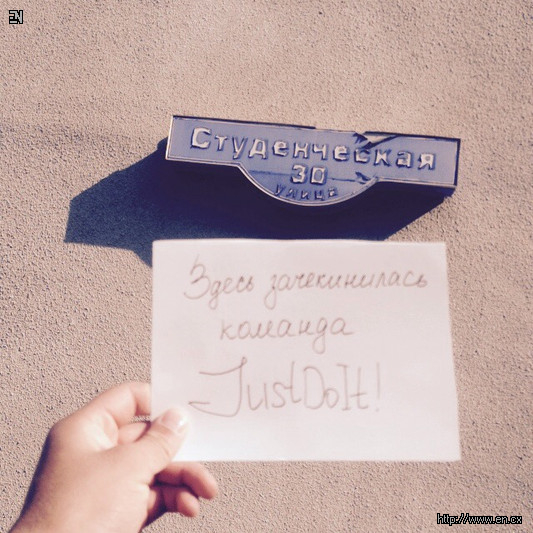 EN
Студенческая
30
улица
Здесь зачекинилась
команда
JustDoIt!
http://www.en.cx